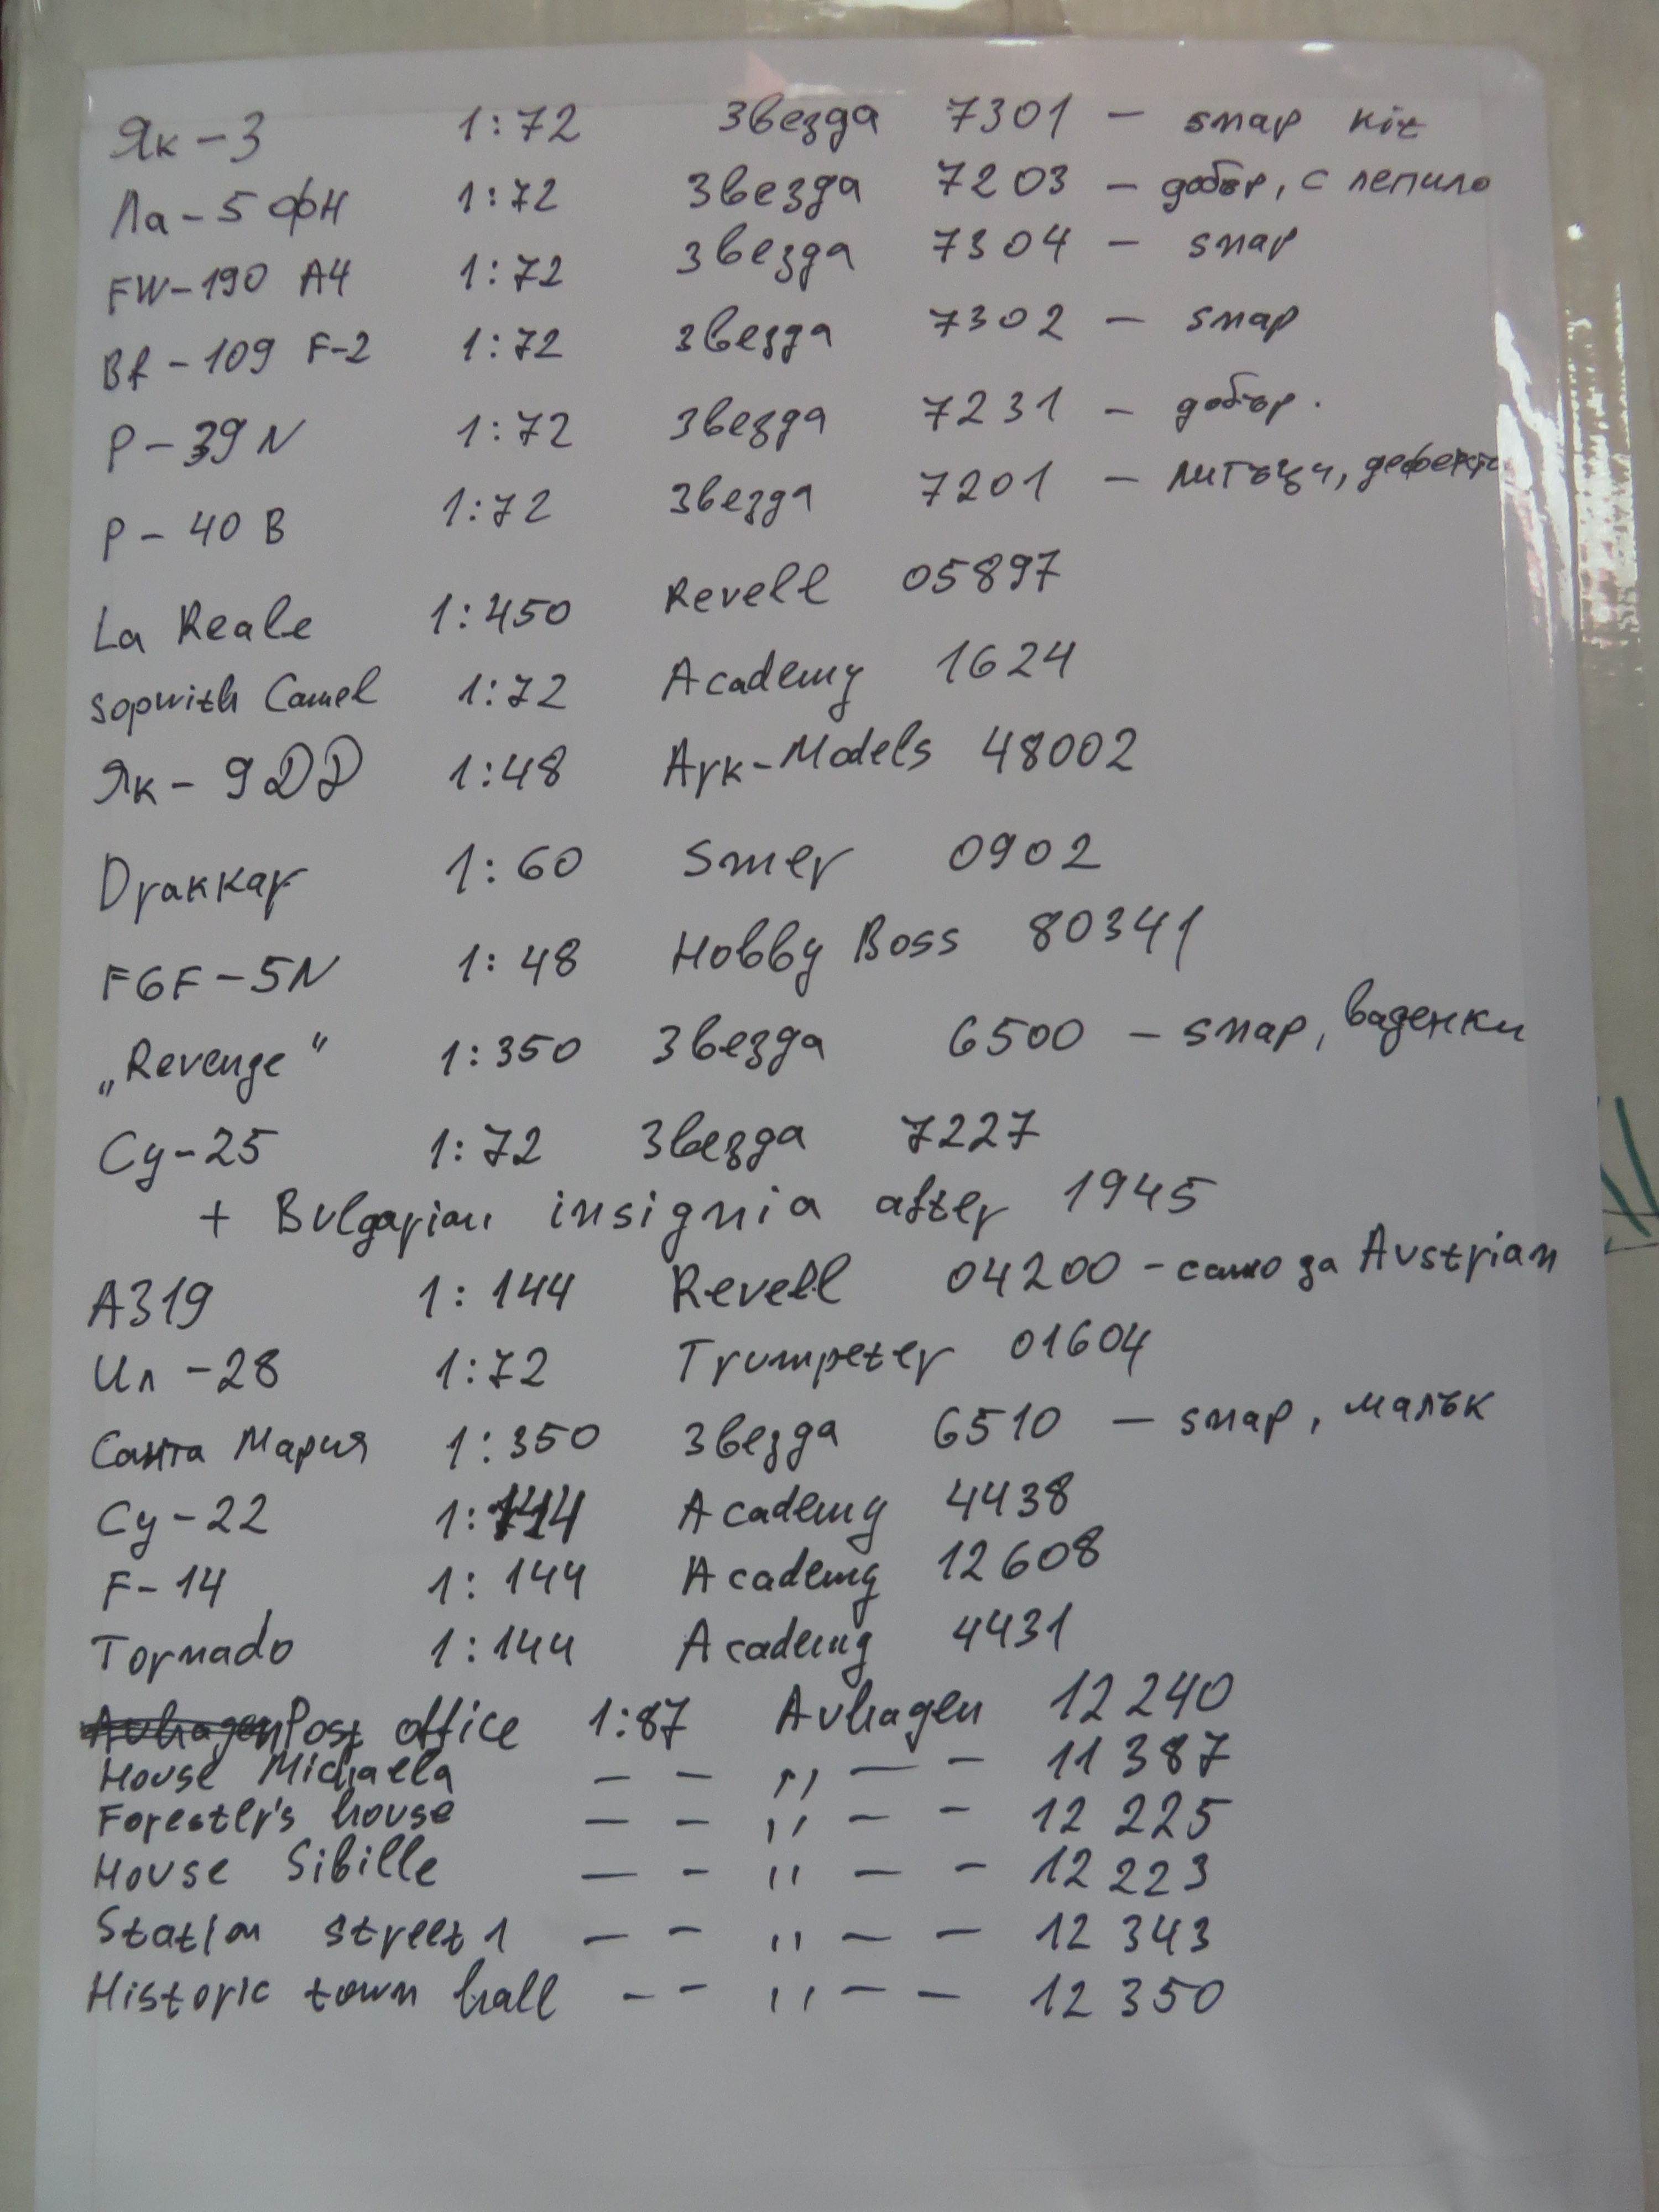 Як-3 1:72 Звезда 7301 - snap kit
Ла-5 фн 1:72 Звезда 7203 - добър, с лепило
FW-190 A4 1:72 Звезда 7304 - snap
Bf-109 F-2 1:72 Звезда 7302 - snap
P-39 N 1:72 Звезда 7231 - добър.
P-40 B 1:72 Звезда 7201 -
La Reale 1:450 Revell 05897
Sopwith Camel 1:72 Academy 1624
Як-9ДД 1:48 Ark-Models 48002
Drakkar 1:60 Smer 0902
F6F-5N 1:48 Hobby Boss 80341
„Revenge" 1:350 Звезда 6500 - snap, ваденки
Су-25 1:72 Звезда 7227
+ Bulgarian insignia after 1945
A319 1:144 Revell 04200 - само за Austrian
Ил-28 1:72 Trumpeter 01604
Санта Мария 1:350 Звезда 6510 - snap, малък
Су-22 1:144 Academy 4438
F-14 1:144 Academy 12608
Tornado 1:144 Academy 4431
Post office 1:87 Auhagen 12 240
House Michaela - - '' - - 11 387
Forester's house - - '' - - 12 225
House Sibille - - '' - - 12 223
Station street 1 - - '' - - 12 343
Historic town hall - - '' - - 12 350